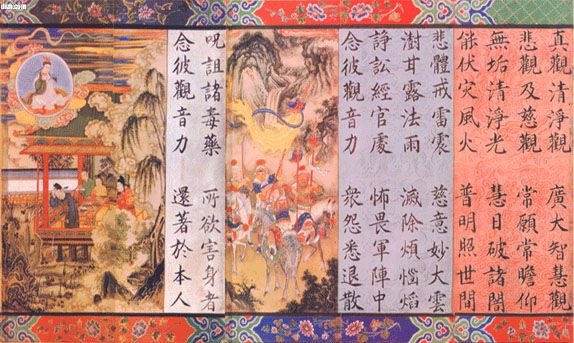 真觀清淨觀 廣大智慧觀
悲觀及慈觀 常願常瞻仰
無垢清淨光 慧日破諸闇
能伏灾風火 普明照世間
悲體戒雷震 慈意妙大雲
澍甘露法雨 滅除煩惱焰
諍訟經官處 怖畏軍陣中
念彼觀音力 衆怨悉退散
呪詛諸毒藥 所欲害身者
念彼觀音力 還著於本人